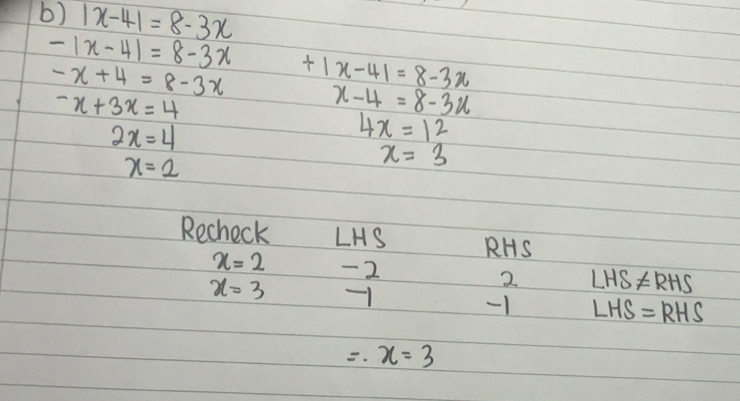 b) |x-4| = 8-3x
-|x-4| = 8-3x
-x+4 = 8-3x
-x+3x = 4
2x = 4
x = 2
+|x-4| = 8-3x
x-4 = 8-3x
4x = 12
x = 3
Recheck LHS RHS
x=2 -2 2 LHS≠RHS
x=3 -1 -1 LHS=RHS
=. x = 3